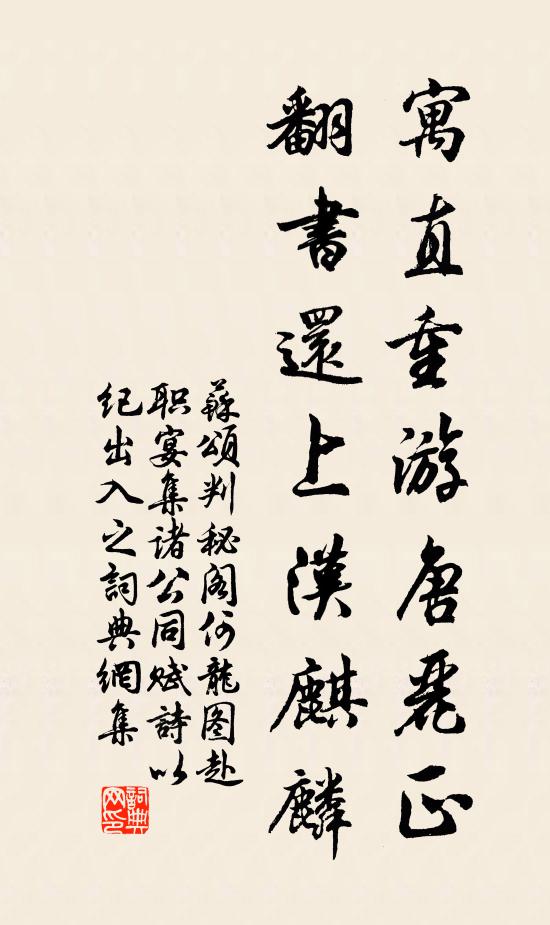 寓直重游唐麗正
翻書還上漢麒麟
蘇頌判秘閣何龍图赴
职宴集诸公同赋詩以
纪出入之詞典網集
詞典网印